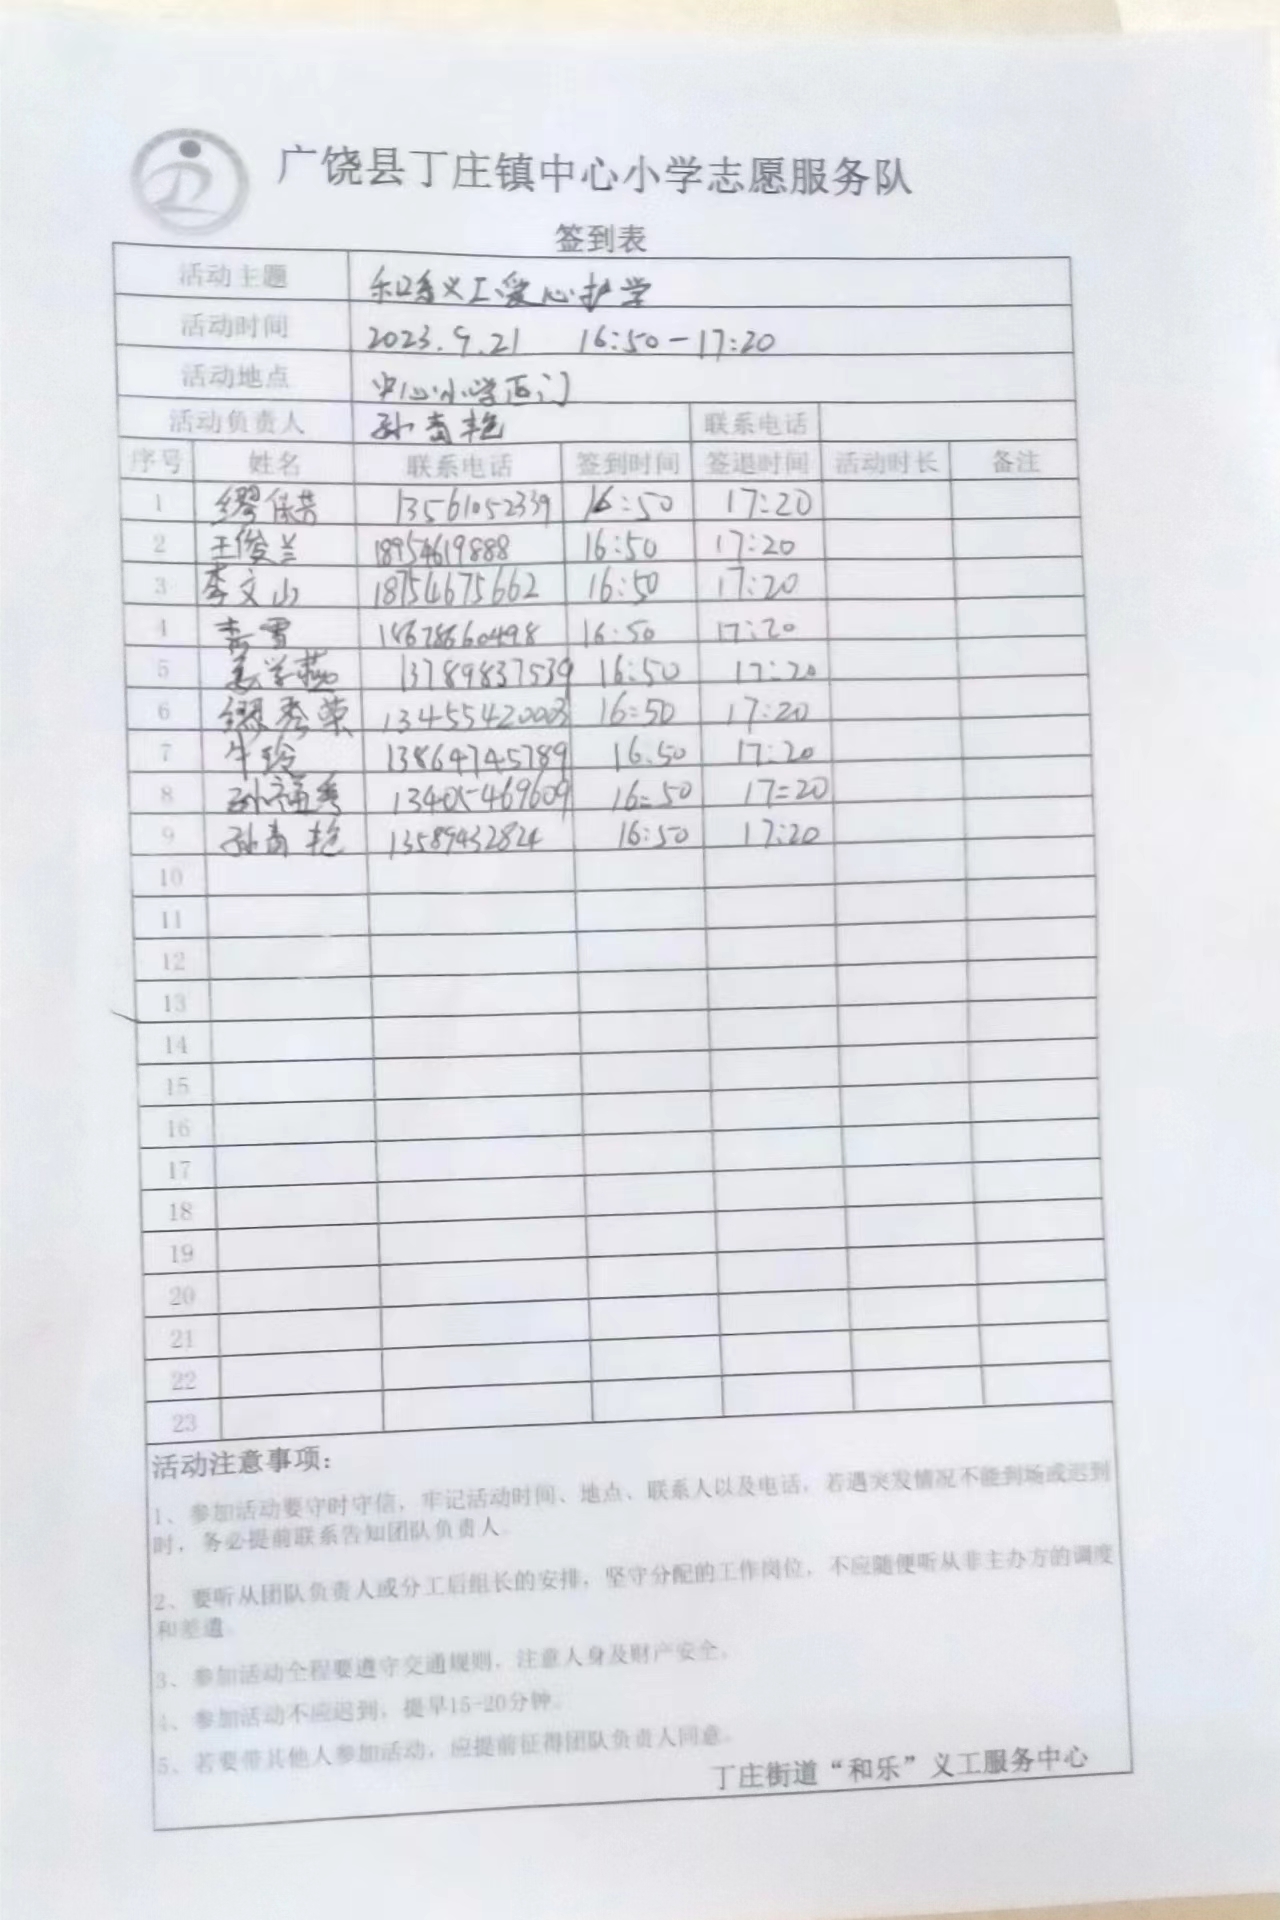 广饶县丁庄镇中心小学志愿服务队
签到表
活动主题 义工爱心护学
活动时间 2023.9.21 16:50-17:20
活动地点 中心小学西门
活动负责人 孙青艳 联系电话
序号 姓名 联系电话 签到时间 签退时间 活动时长 备注
1 缪保芸 13561052339 16:50 17:20
2 王俊兰 18954619888 16:50 17:20
3 李文山 18754675662 16:50 17:20
4 16:50 17:20
5 13789837539 16:50 17:20
6 缪秀荣 13455420003 16:50 17:20
7 牛玲 13864745789 16:50 17:20
8 13405469609 16:50 17:20
9 孙青艳 13589432824 16:50 17:20
10
11
12
13
14
15
16
17
18
19
20
21
22
23
活动注意事项:
1、参加活动要守时守信，牢记活动时间、地点、联系人以及电话，若遇突发情况不能到场或迟到
时，务必提前联系告知团队负责人。
2、要听从团队负责人或分工后组长的安排，坚守分配的工作岗位，不应随便听从非主办方的调度
和差遣。
3、参加活动全程要遵守交通规则，注意人身及财产安全。
4、参加活动不应迟到，提早15-20分钟。
5、若要带其他人参加活动，应提前征得团队负责人同意。
丁庄街道“和乐”义工服务中心